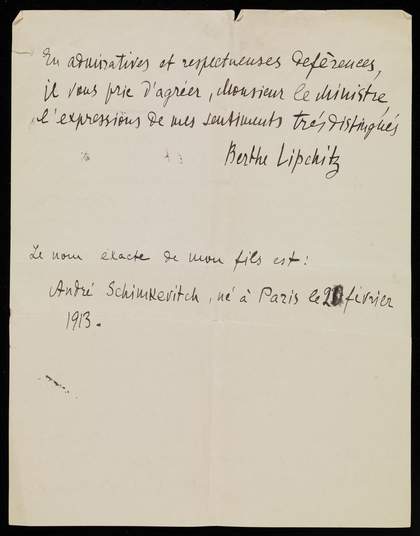 En admiratives et respectueuses deférences,
je vous prie d'agréer, Monsieur le Ministre,
l'expressions de mes sentiments très distingués
Berthe Lipchitz
Le nom éxacte de mon fils est:
André Schimkevitch, né à Paris le février
1913.